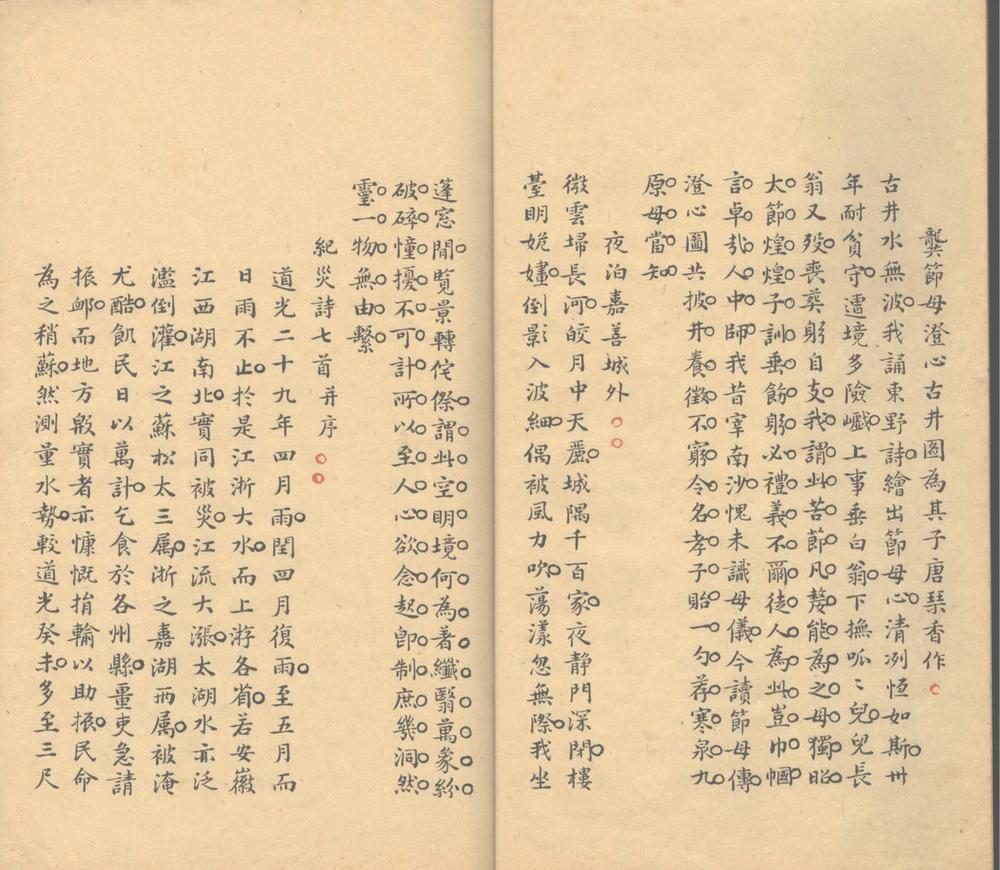 龔節母澄心古井圖為其子唐琹香作
古井水無波我誦東野詩繪出節母心清冽恒如斯卅
年耐貧守遭境多險巇上事垂白翁下撫呱〻兒兒長
翁又歿喪葬躬自支我謂此苦節凡嫠能為之母獨昭
太節煌煌子訓垂飭躬必禮義不爾徒人為此豈巾幗
言卓哉人中師我昔宰南沙愧未識母儀今讀節母傳
澄心圖共披井養徵不窮令名孝子貽一勺荐寒泉九
原母當知
夜泊嘉善城外
微雲埽長河皎月中天麗城隅千百家夜靜門深閉樓
臺明旎㜢倒影入波細偶被風力吹蕩漾忽無際我坐
蓬窓閒覽景轉侘傺謂此空明境何為著纖翳萬象紛
破碎憧擾不可計所以至人心欲念起卽制庶幾洞然
靈一物無由繫
紀災詩七首并序
道光二十九年四月雨閏四月復雨至五月而
日雨不止於是江浙大水而上游各省若安徽
江西湖南北實同被災江流大漲太湖水亦泛
濫倒灌江之蘇松太三属浙之嘉湖兩属被淹
尤酷飢民日以萬計乞食於各州縣董吏急請
振卹而地方殷實者亦慷慨捐輸以助振民命
為之稍蘇然測量水勢較道光癸未多至三尺